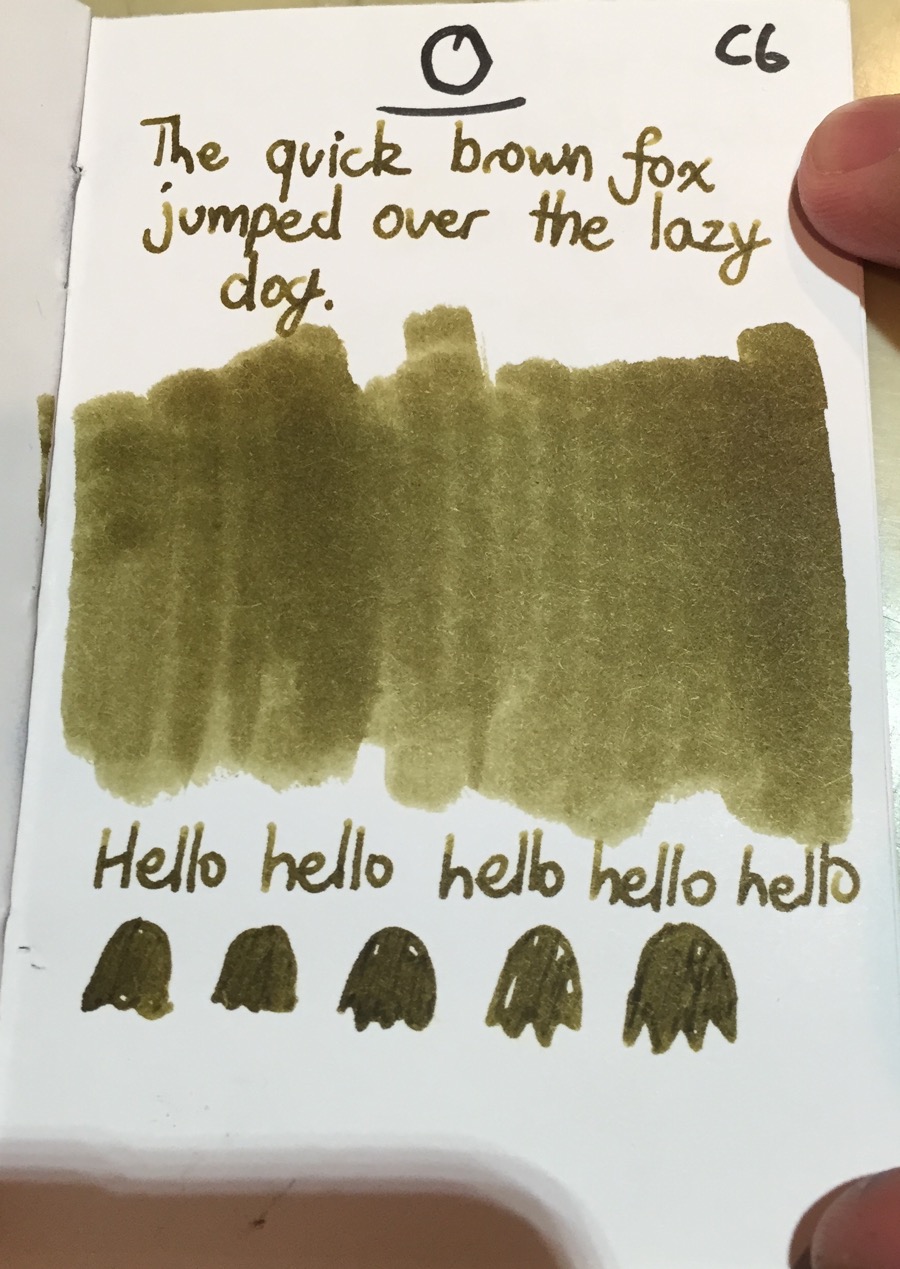 O
C6
The quick brown fox
jumped over the lazy
dog.
Hello hello hello hello hello